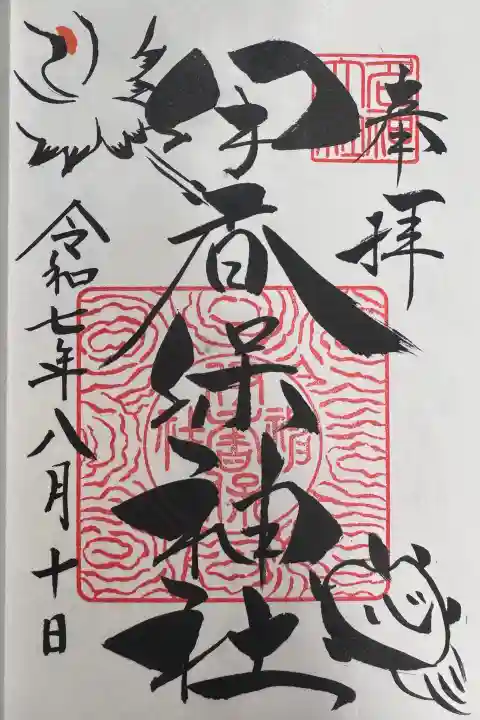 奉拝
伊香保神社
令和七年八月十日